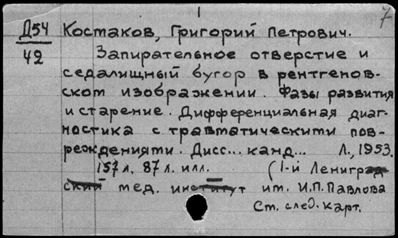 7
Д54
42
Костаков, Григорий Петрович.
Запирательное отверстие и
седалищный бугор в рентгенов-
ском изображении. Фазы развития
и старение. Дифференциальная диаг-
ностика с травматическими пов-
реждениями. Дисс... канд... Л., 1953.
157 л., 87 л. илл. (1-й Ленинград-
ский мед. институт им. И.П. Павлова
Ст. след. карт.